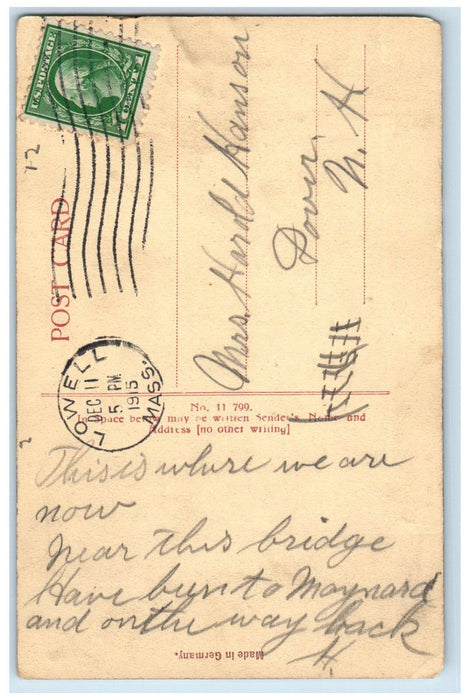 U.S. POSTAGE
1 CENT 1
12
POST CARD
LOWELL
DEC 11
5 PM
1915
MASS.
Mrs. Harold Hanson
Dover
N. H
No. 11 799.
In space below may be written Sender's Name and
Address [no other writing]
This is where we are
now
near this bridge
Have been to Maynard
and on the way back
H.
Made in Germany.